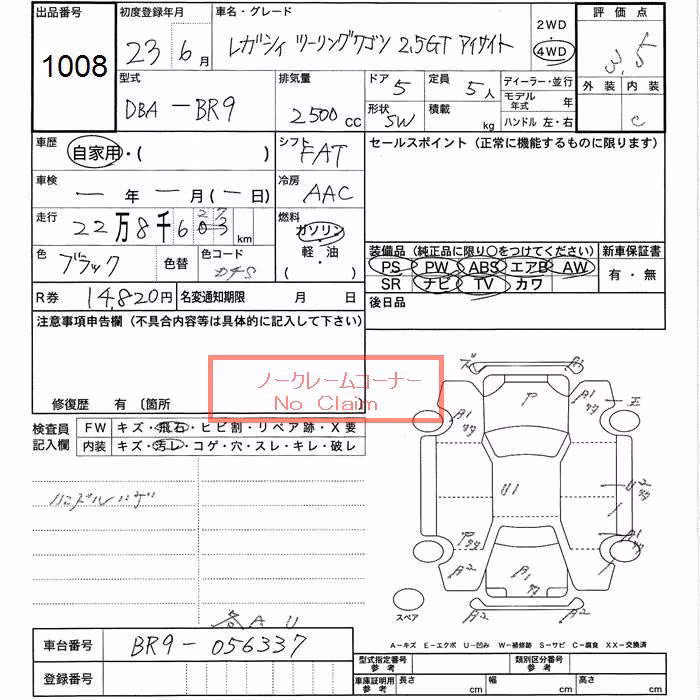 出品番号
1008
初度登録年月
23 6月
車名・グレード
レガシィ ツーリングワゴン 2.5GT アイサイト
2WD
4WD
評価点
3.5
外装 内装
C
型式
DBA-BR9
排気量
2500cc
ドア 5
形状 SW
定員 5人
積載 kg
ディーラー・並行
モデル年式 年
ハンドル 左・右
車歴
自家用・( )
シフト FAT
セールスポイント(正常に機能するものに限ります)
車検 一年一月(一日)
冷房 AAC
走行 22万8千6
km
燃料
ガソリン
軽・油
( )
色 ブラック
色替
色コード
装備品(純正品に限り○をつけてください)
新車保証書
PS PW ABS エアB AW
SR ナビ TV カワ
有・無
R券 14,820円
名変通知期限 月 日
後日品
注意事項申告欄(不具合内容等は具体的に記入して下さい)
ノークレームコーナー
No Claim
修復歴 有 〔箇所
検査員
記入欄
FW キズ・飛石・ヒビ割・リペア跡・X要
内装 キズ・汚レ・コゲ・穴・スレ・キレ・破レ
ハンドルハゲ
各AU
A1
ア
A1
U1
U2
A2
A1
A2
A2
A2
スペア
車台番号 BR9-056337
登録番号
A-キズ E-エクボ U-凹み W-補修跡 S-サビ C-腐食 XX-交換済
型式指定番号
参考
類別区分番号
参考
車庫証明用
参考
長さ cm
幅 cm
高さ cm